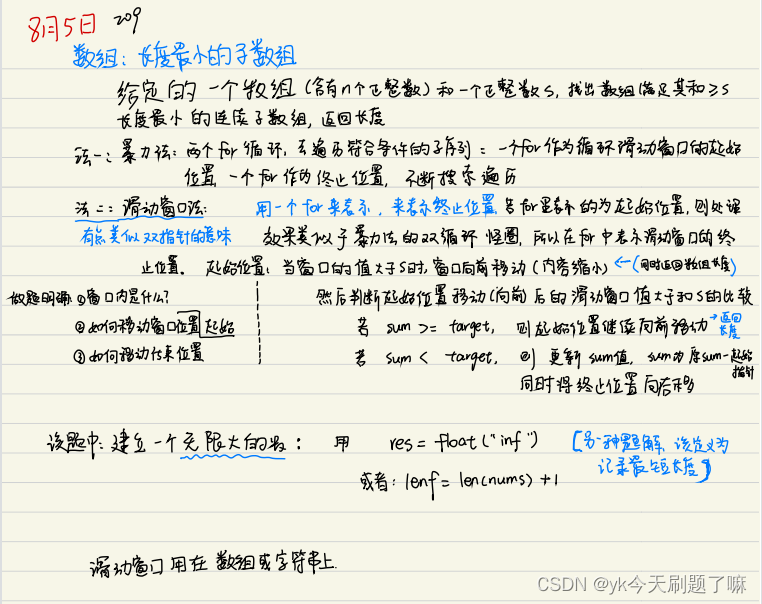 8月5日 209
数组：长度最小的子数组
给定的一个数组（含有n个正整数）和一个正整数s，找出数组满足其和≥s
长度最小的连续子数组，返回长度
法一：暴力法：两个for循环，去遍历符合条件的子序列：一个for作为循环滑动窗口的起始
位置，一个for作为终止位置，不断搜索遍历
法二：滑动窗口法： 用一个for来表示，来表示终止位置 若for里表示的为起始位置，则处理
有点类似双指针的意味 效果类似于暴力法的双循环 怪圈，所以在for中表示滑动窗口的终
止位置。 起始位置：当窗口的值大于s时，窗口向前移动（内容缩小）←（同时返回数组长度）
做题明确：①窗口内是什么？ 然后判断起始位置移动（向前）后的滑动窗口值大于和s的比较
②如何移动窗口位置起始 若 sum >= target， 则起始位置继续向前移动 →返回长度
③如何移动结束位置 若 sum < target， 则 更新sum值，sum为原sum-起始指针
同时将终止位置向右移
该题中：建立一个无限大的数： 用 res = float("inf") [另一种题解，该定义为
记录最短长度]
或者：lenf = len(nums) + 1
滑动窗口用在数组或字符串上.
CSDN @yk今天刷题了嘛